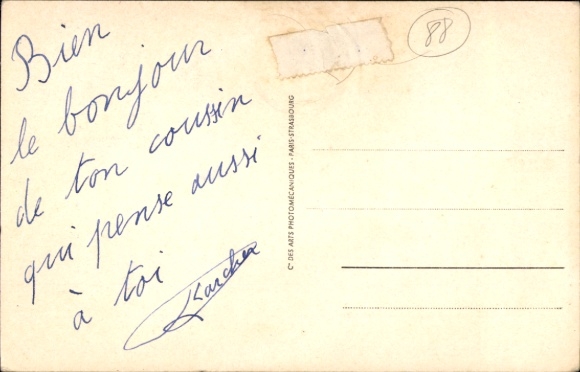 Bien
le bonjour
de ton coussin
qui pense aussi
à toi
Karcher
88
Cie DES ARTS PHOTOMÉCANIQUES - PARIS-STRASBOURG